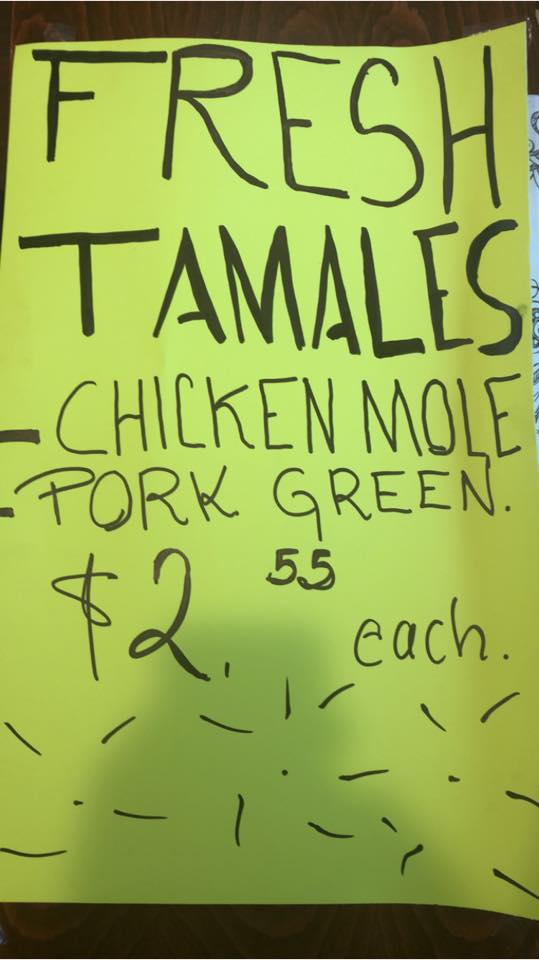 FRESH
TAMALES
- CHICKEN MOLE
- PORK GREEN.
$2.55 each.